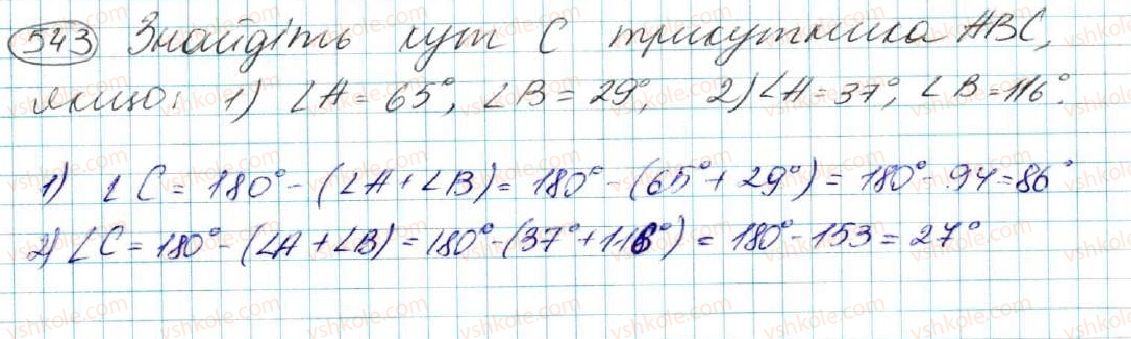 543 Знайдіть кут С трикутника АВС,
якщо: 1) ∠A = 65°, ∠B = 29°, 2) ∠A = 37°, ∠B = 116°.
1) ∠C = 180° - (∠A + ∠B) = 180° - (65° + 29°) = 180° - 94 = 86°
2) ∠C = 180° - (∠A + ∠B) = 180° - (37° + 116°) = 180° - 153 = 27°